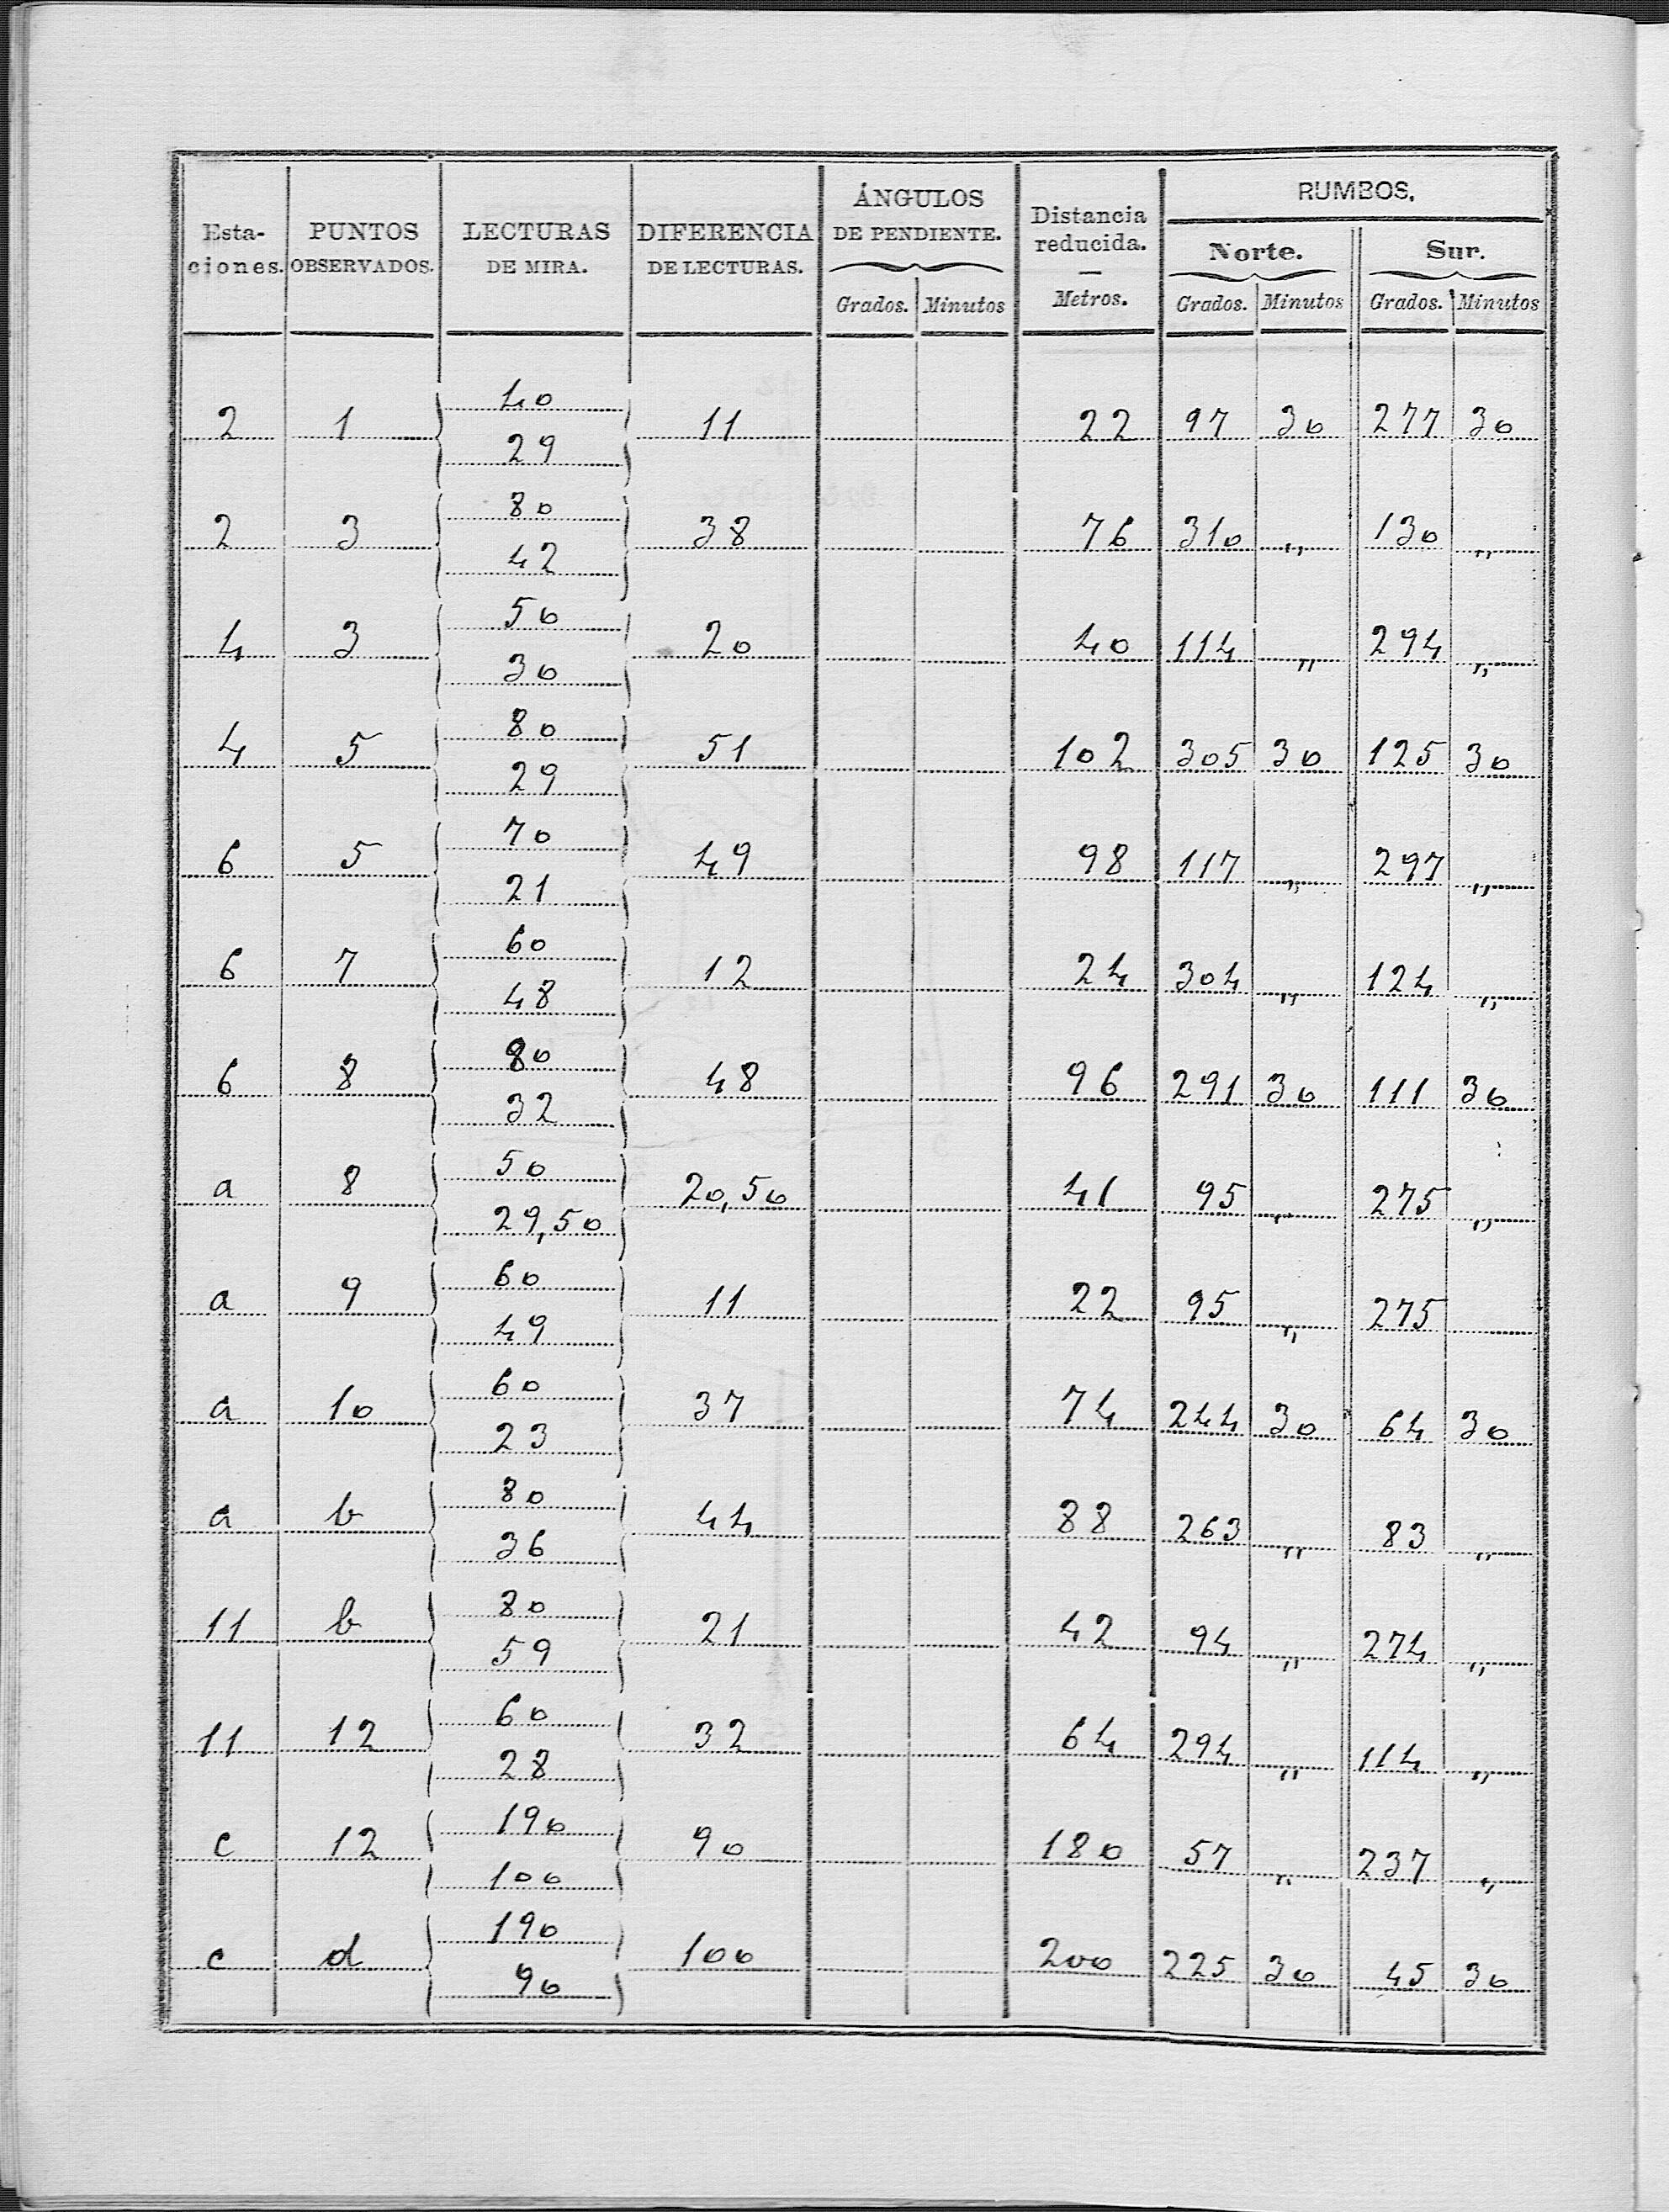 Esta-ciones. PUNTOS OBSERVADOS. LECTURAS DE MIRA. DIFERENCIA DE LECTURAS. ÁNGULOS DE PENDIENTE. Distancia reducida. — Metros. RUMBOS.
Norte. Sur.
Grados. Minutos Grados. Minutos Grados. Minutos
40
2 1 11 22 97 30 277 30
29
80
2 3 38 76 310 „ 130 „
42
50
4 3 20 40 114 „ 294 „
30
80
4 5 51 102 305 30 125 30
29
70
6 5 49 98 117 „ 297 „
21
60
6 7 12 24 304 „ 124 „
48
80
6 8 48 96 291 30 111 30
32
50
a 8 20,50 41 95 „ 275 „
29,50
60
a 9 11 22 95 „ 275
49
60
a 10 37 74 244 30 64 30
23
80
a b 44 88 263 „ 83 „
36
80
11 b 21 42 94 „ 274 „
59
60
11 12 32 64 294 „ 114 „
28
190
c 12 90 180 57 „ 237 „
100
190
c d 100 200 225 30 45 30
90